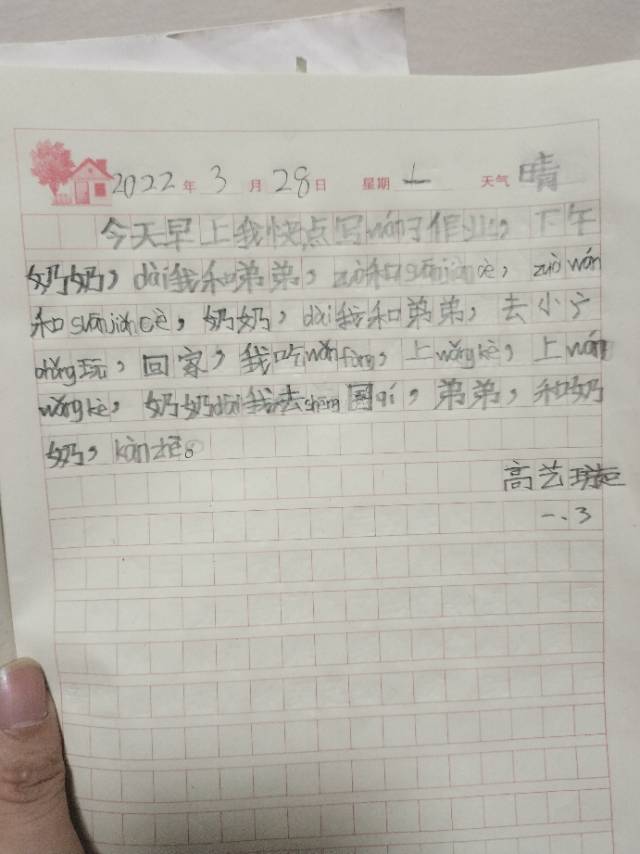 2022年3月28日 星期一 天气晴
今天早上我快点写wán了作业，下午
奶奶，dài我和弟弟，zuò和suānjiǎncè，zuò wán
和suānjiǎncè，奶奶，dài我和弟弟，去小广
chǎng玩，回家，我吃wǎn fàng，上wǎng kè，上wán
wǎng kè，奶奶dài我去shēng国qí，弟弟，和奶
奶，kàn zhē。
高艺
一.3